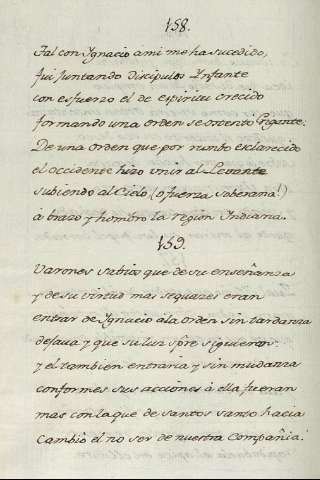 158.
Tal con Ygnacio ami me ha sucedido,
fui Juntando Discipulos Infante
con esfuerzo el de espiritu crecido
formando una orden se creenzo Gigante:
De una orden que por rumbo esclarecido
el occidente hizo vnir al Levante
subiendo al Cielo (ò fuerza soberana!)
à brazo y hombro la region Indiana.
159.
Varones sabios que de su enseñanza
y de su virtud mas sequazes eran
entrar de Ygnacio àla orden sin tardanza
desava y que su luz spre siguieron:
y el tambien entraria y sin mudanza
conformes sus acciones à ella fueran
mas con la que de santos santo hacia
Cambiò el no ser de nuestra Compañia.